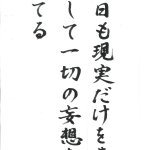 日も現実だけを
して一切の妄想
てる